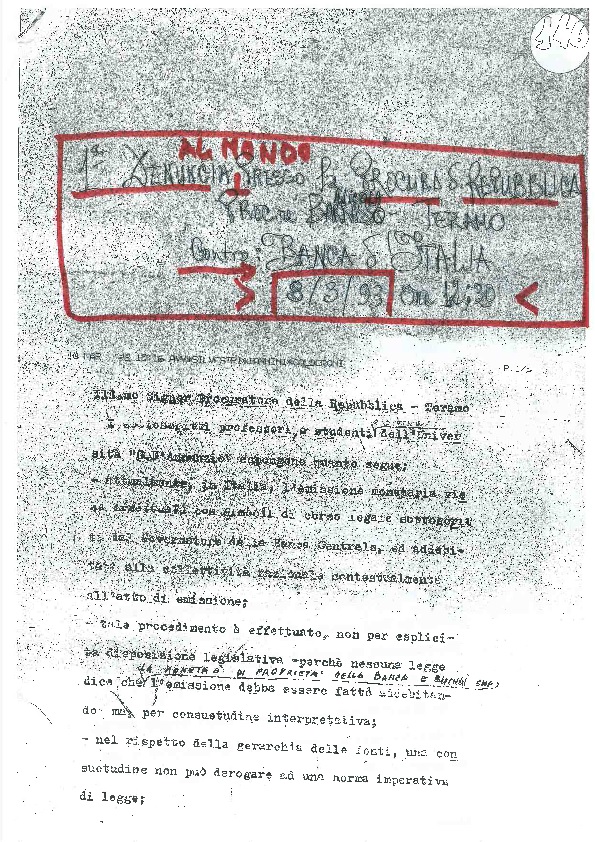 146
AL MONDO
1ª DENUNCIA PRESSO la PROCURA d REPUBBLICA
TERAMO
Contro: BANCA d'ITALIA
> 8/3/93 Ore 12:30 <
P. 1/
Ill.mo Signor Procuratore della Repubblica - Teramo
professori e studenti dell'Univer
sità "G.D'Annunzio" espongono quanto segue;
- attualmente, in Italia, l'emissione monetaria vie
ne con simboli di corso legale
Governatore della Banca Centrale, ed addebi-
tata alla collettività nazionale contestualmente
all'atto di emissione;
- tale procedimento è effettuato, non per esplici-
ta disposizione legislativa -perchè nessuna legge
LA MONETA È DI PROPRIETÀ DELLA BANCA E
dice che l'emissione debba essere fatta addebitan-
do- ma per consuetudine interpretativa;
- nel rispetto della gerarchia delle fonti, una con
suetudine non può derogare ad una norma imperativa
di legge;